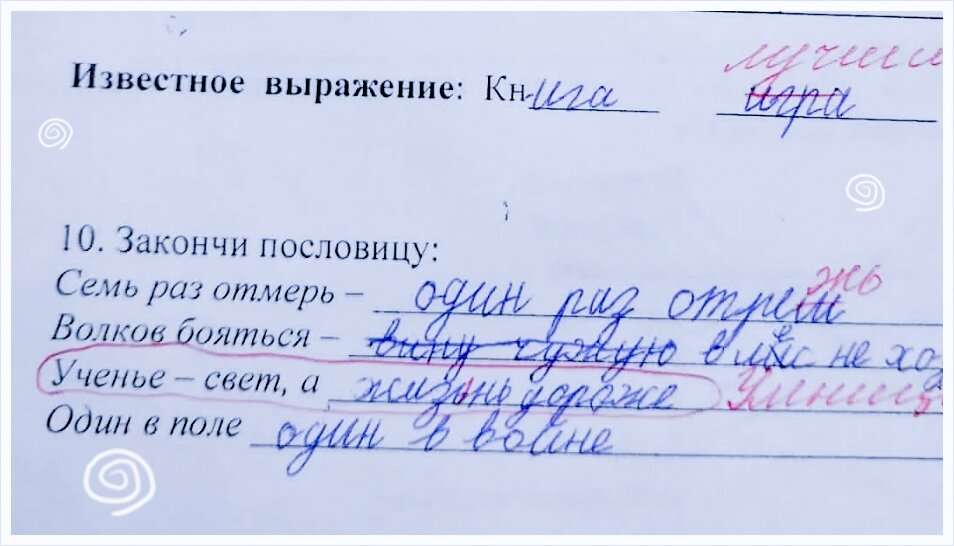 лучши
Известное выражение: Книга игра
10. Закончи пословицу:
жь
Семь раз отмерь – один раз отреш
Волков бояться – вину чужую в лес не хо
Ученье – свет, а жизьнь дороже Умниц
Один в поле один в войне